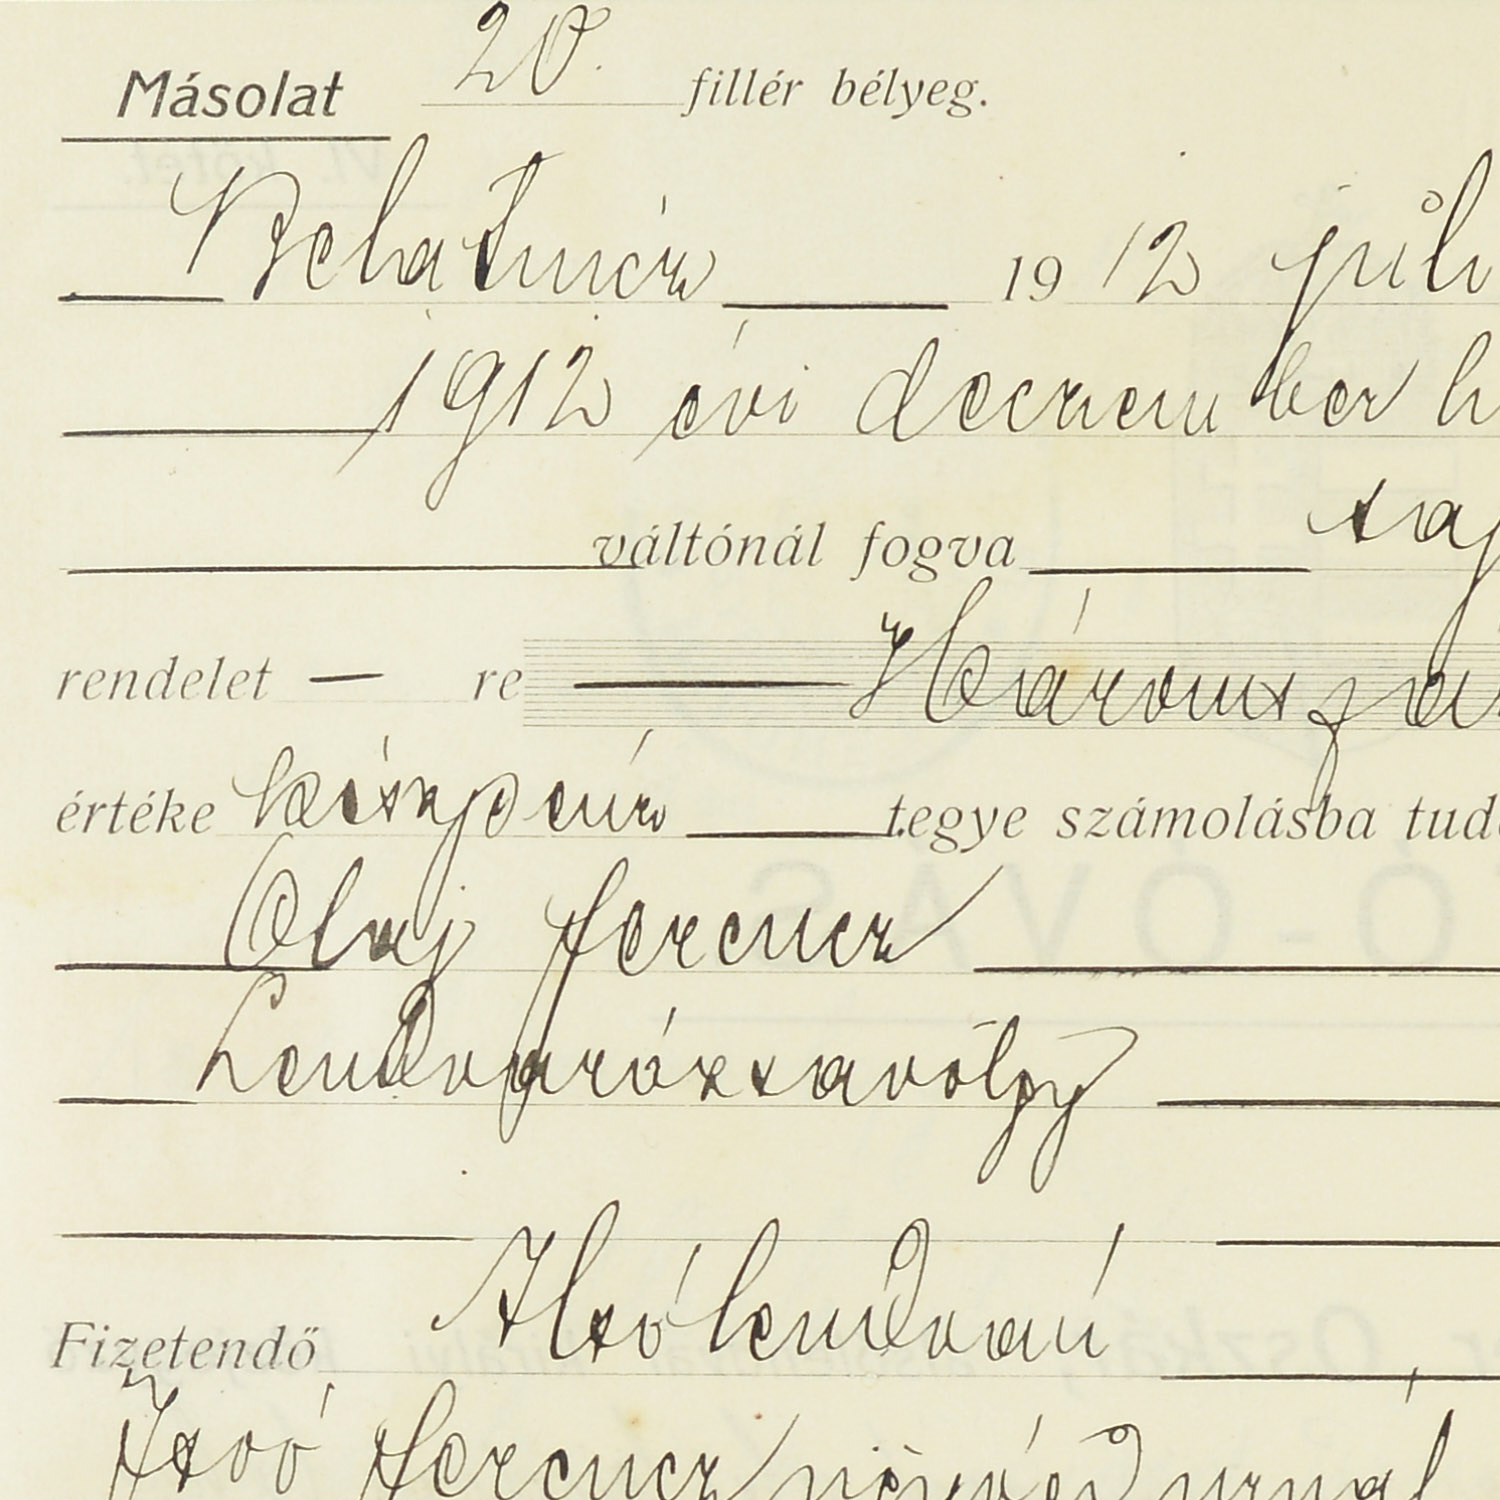 Másolat 20. fillér bélyeg.
Belatincz 19 12 júl
1912 évi deczember h
váltónál fogva saj
rendelet — re Háromszáz
értéke készpénz tegye számolásba tud
Olaj Ferencz
Lendvarózsavölgy
Fizetendő Alsólendván
Ferencz ügyvéd urnál